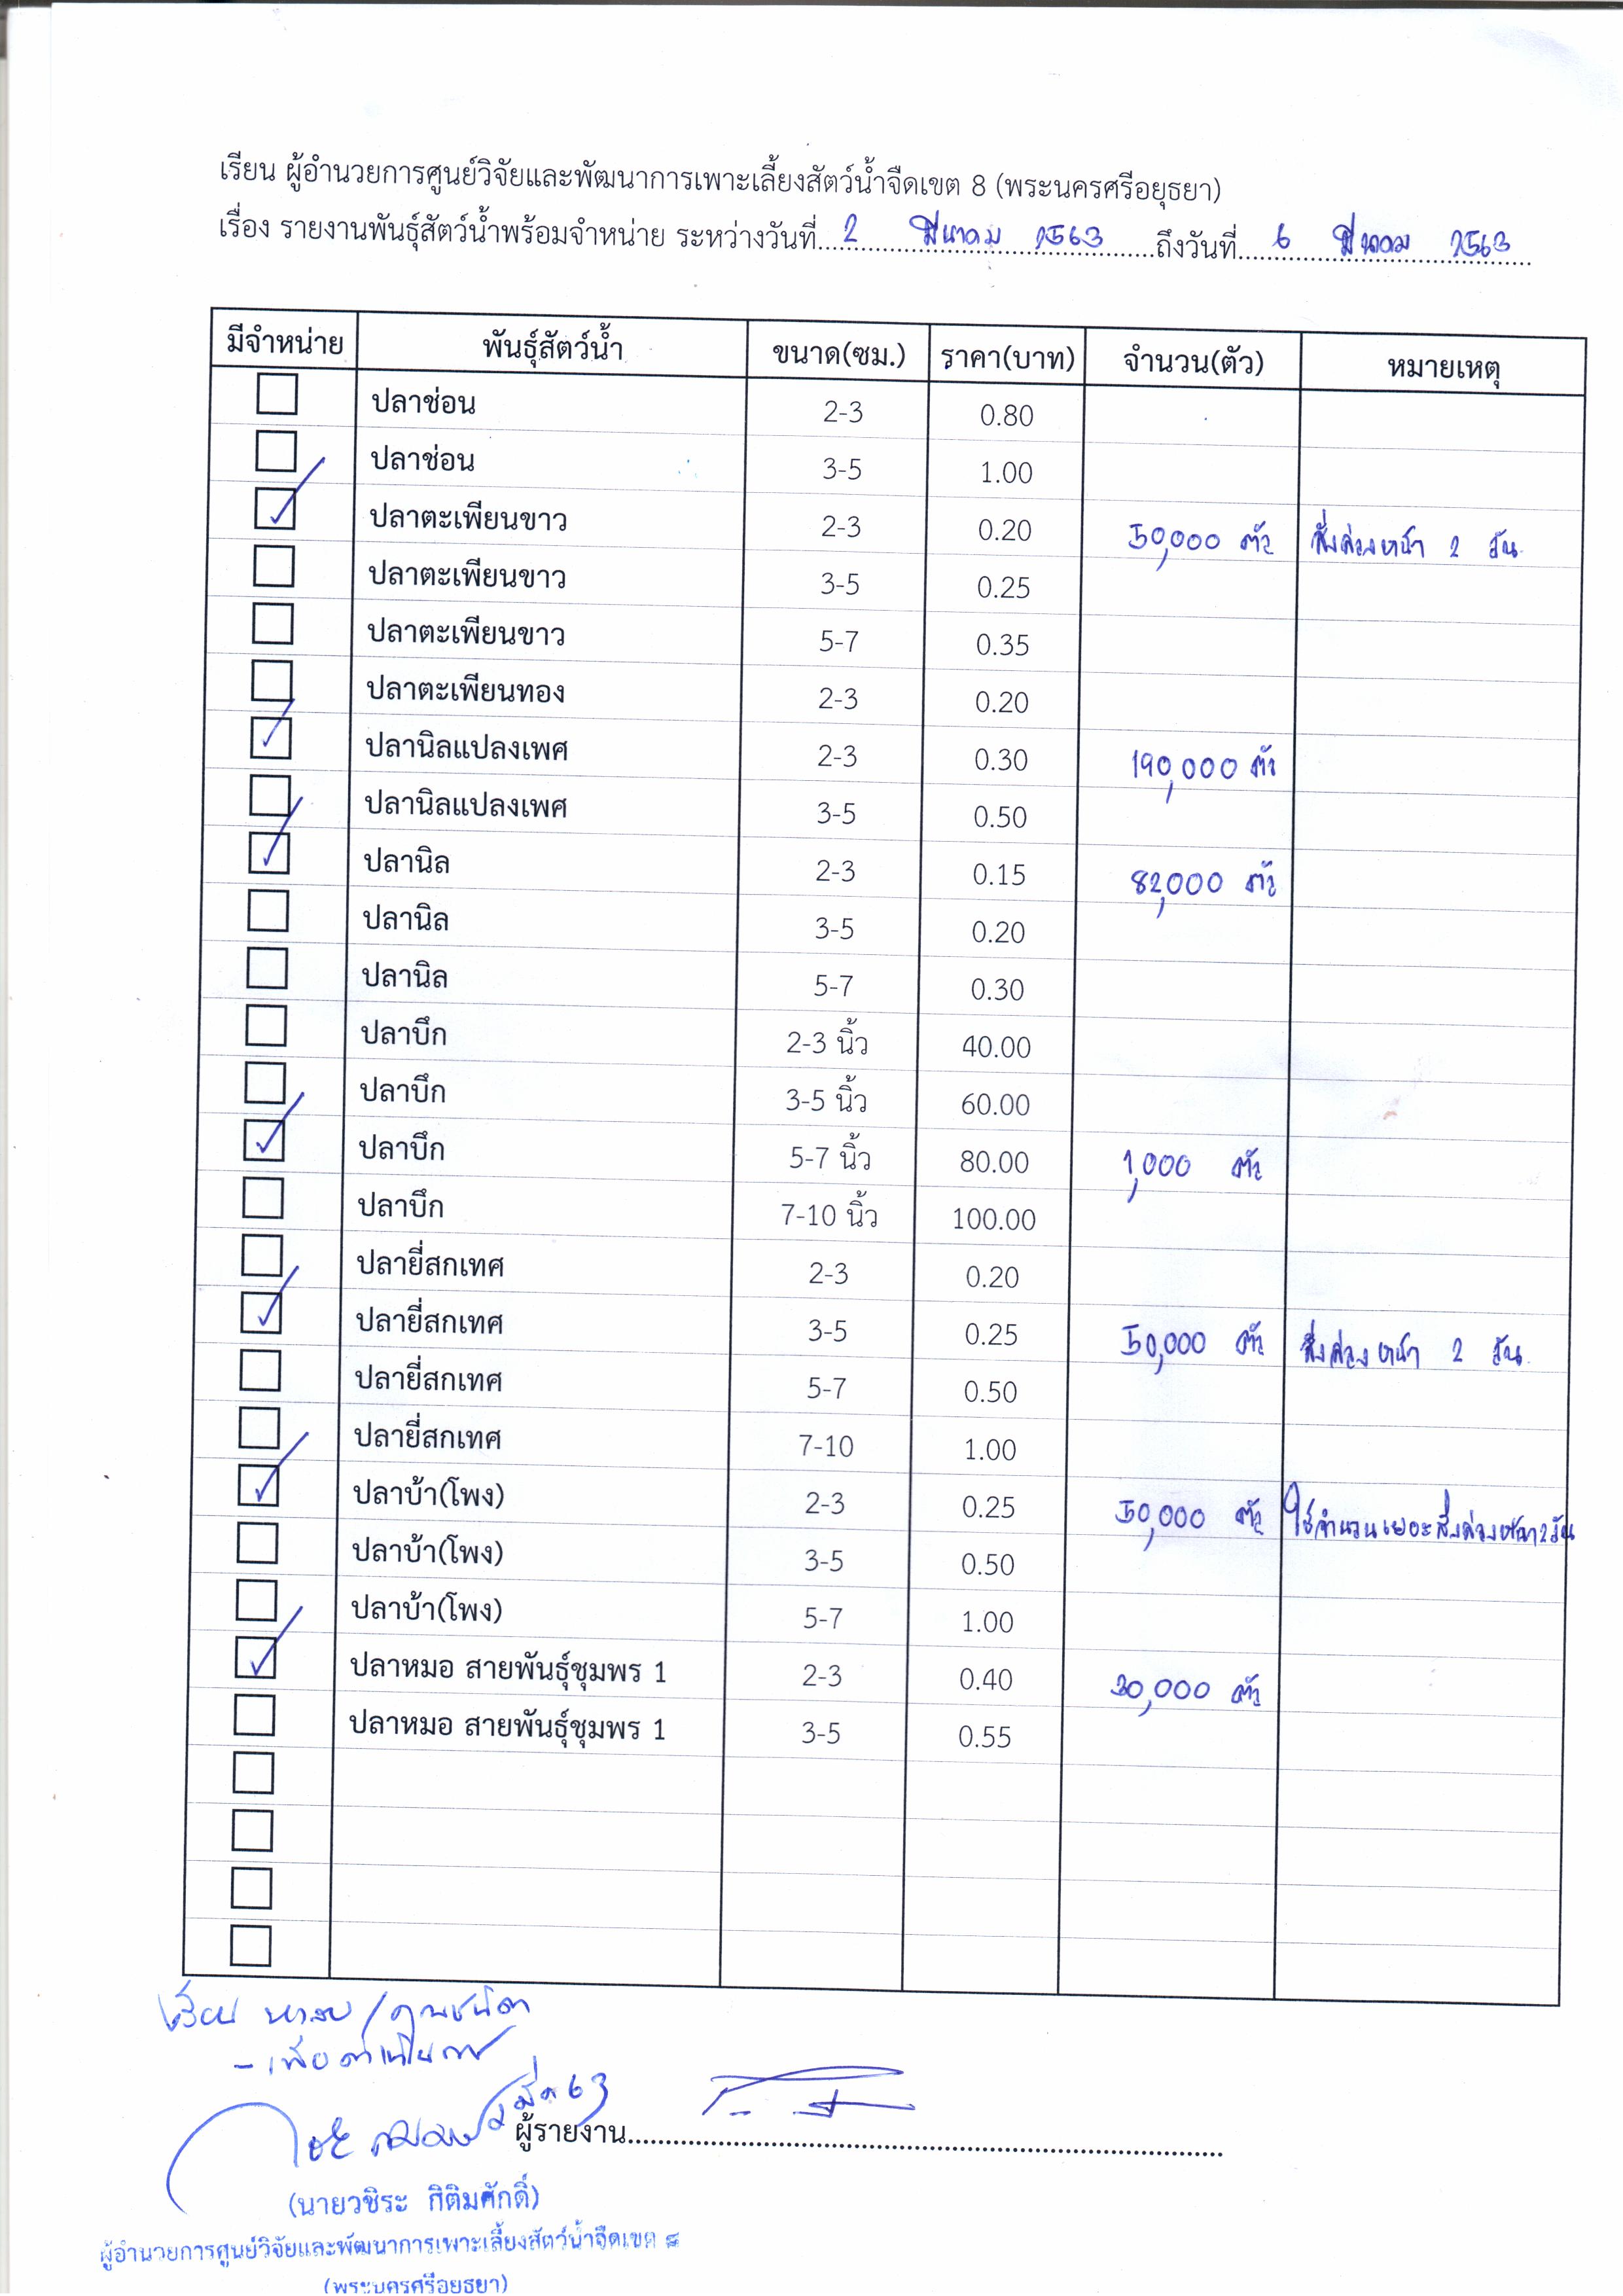 เรียน ผู้อำนวยการศูนย์วิจัยและพัฒนาการเพาะเลี้ยงสัตว์น้ำจืดเขต 8 (พระนครศรีอยุธยา)
เรื่อง รายงานพันธุ์สัตว์น้ำพร้อมจำหน่าย ระหว่างวันที่ 2 มีนาคม 2563 ถึงวันที่ 6 มีนาคม 2563
มีจำหน่าย พันธุ์สัตว์น้ำ ขนาด(ซม.) ราคา(บาท) จำนวน(ตัว) หมายเหตุ
ปลาช่อน 2-3 0.80
ปลาช่อน 3-5 1.00
ปลาตะเพียนขาว 2-3 0.20 50,000 ตัว สั่งล่วงหน้า 2 วัน
ปลาตะเพียนขาว 3-5 0.25
ปลาตะเพียนขาว 5-7 0.35
ปลาตะเพียนทอง 2-3 0.20
ปลานิลแปลงเพศ 2-3 0.30 190,000 ตัว
ปลานิลแปลงเพศ 3-5 0.50
ปลานิล 2-3 0.15 82,000 ตัว
ปลานิล 3-5 0.20
ปลานิล 5-7 0.30
ปลาบึก 2-3 นิ้ว 40.00
ปลาบึก 3-5 นิ้ว 60.00
ปลาบึก 5-7 นิ้ว 80.00 1,000 ตัว
ปลาบึก 7-10 นิ้ว 100.00
ปลายี่สกเทศ 2-3 0.20
ปลายี่สกเทศ 3-5 0.25 50,000 ตัว สั่งล่วงหน้า 2 วัน
ปลายี่สกเทศ 5-7 0.50
ปลายี่สกเทศ 7-10 1.00
ปลาบ้า(โพง) 2-3 0.25 50,000 ตัว ใช้จำนวนเยอะสั่งล่วงหน้า 2 วัน
ปลาบ้า(โพง) 3-5 0.50
ปลาบ้า(โพง) 5-7 1.00
ปลาหมอ สายพันธุ์ชุมพร 1 2-3 0.40 30,000 ตัว
ปลาหมอ สายพันธุ์ชุมพร 1 3-5 0.55
เรียน
- เพื่อดำเนินการ
ผู้รายงาน
(นายวชิระ กิติมศักดิ์)
ผู้อำนวยการศูนย์วิจัยและพัฒนาการเพาะเลี้ยงสัตว์น้ำจืดเขต ๘
(พระนครศรีอยุธยา)